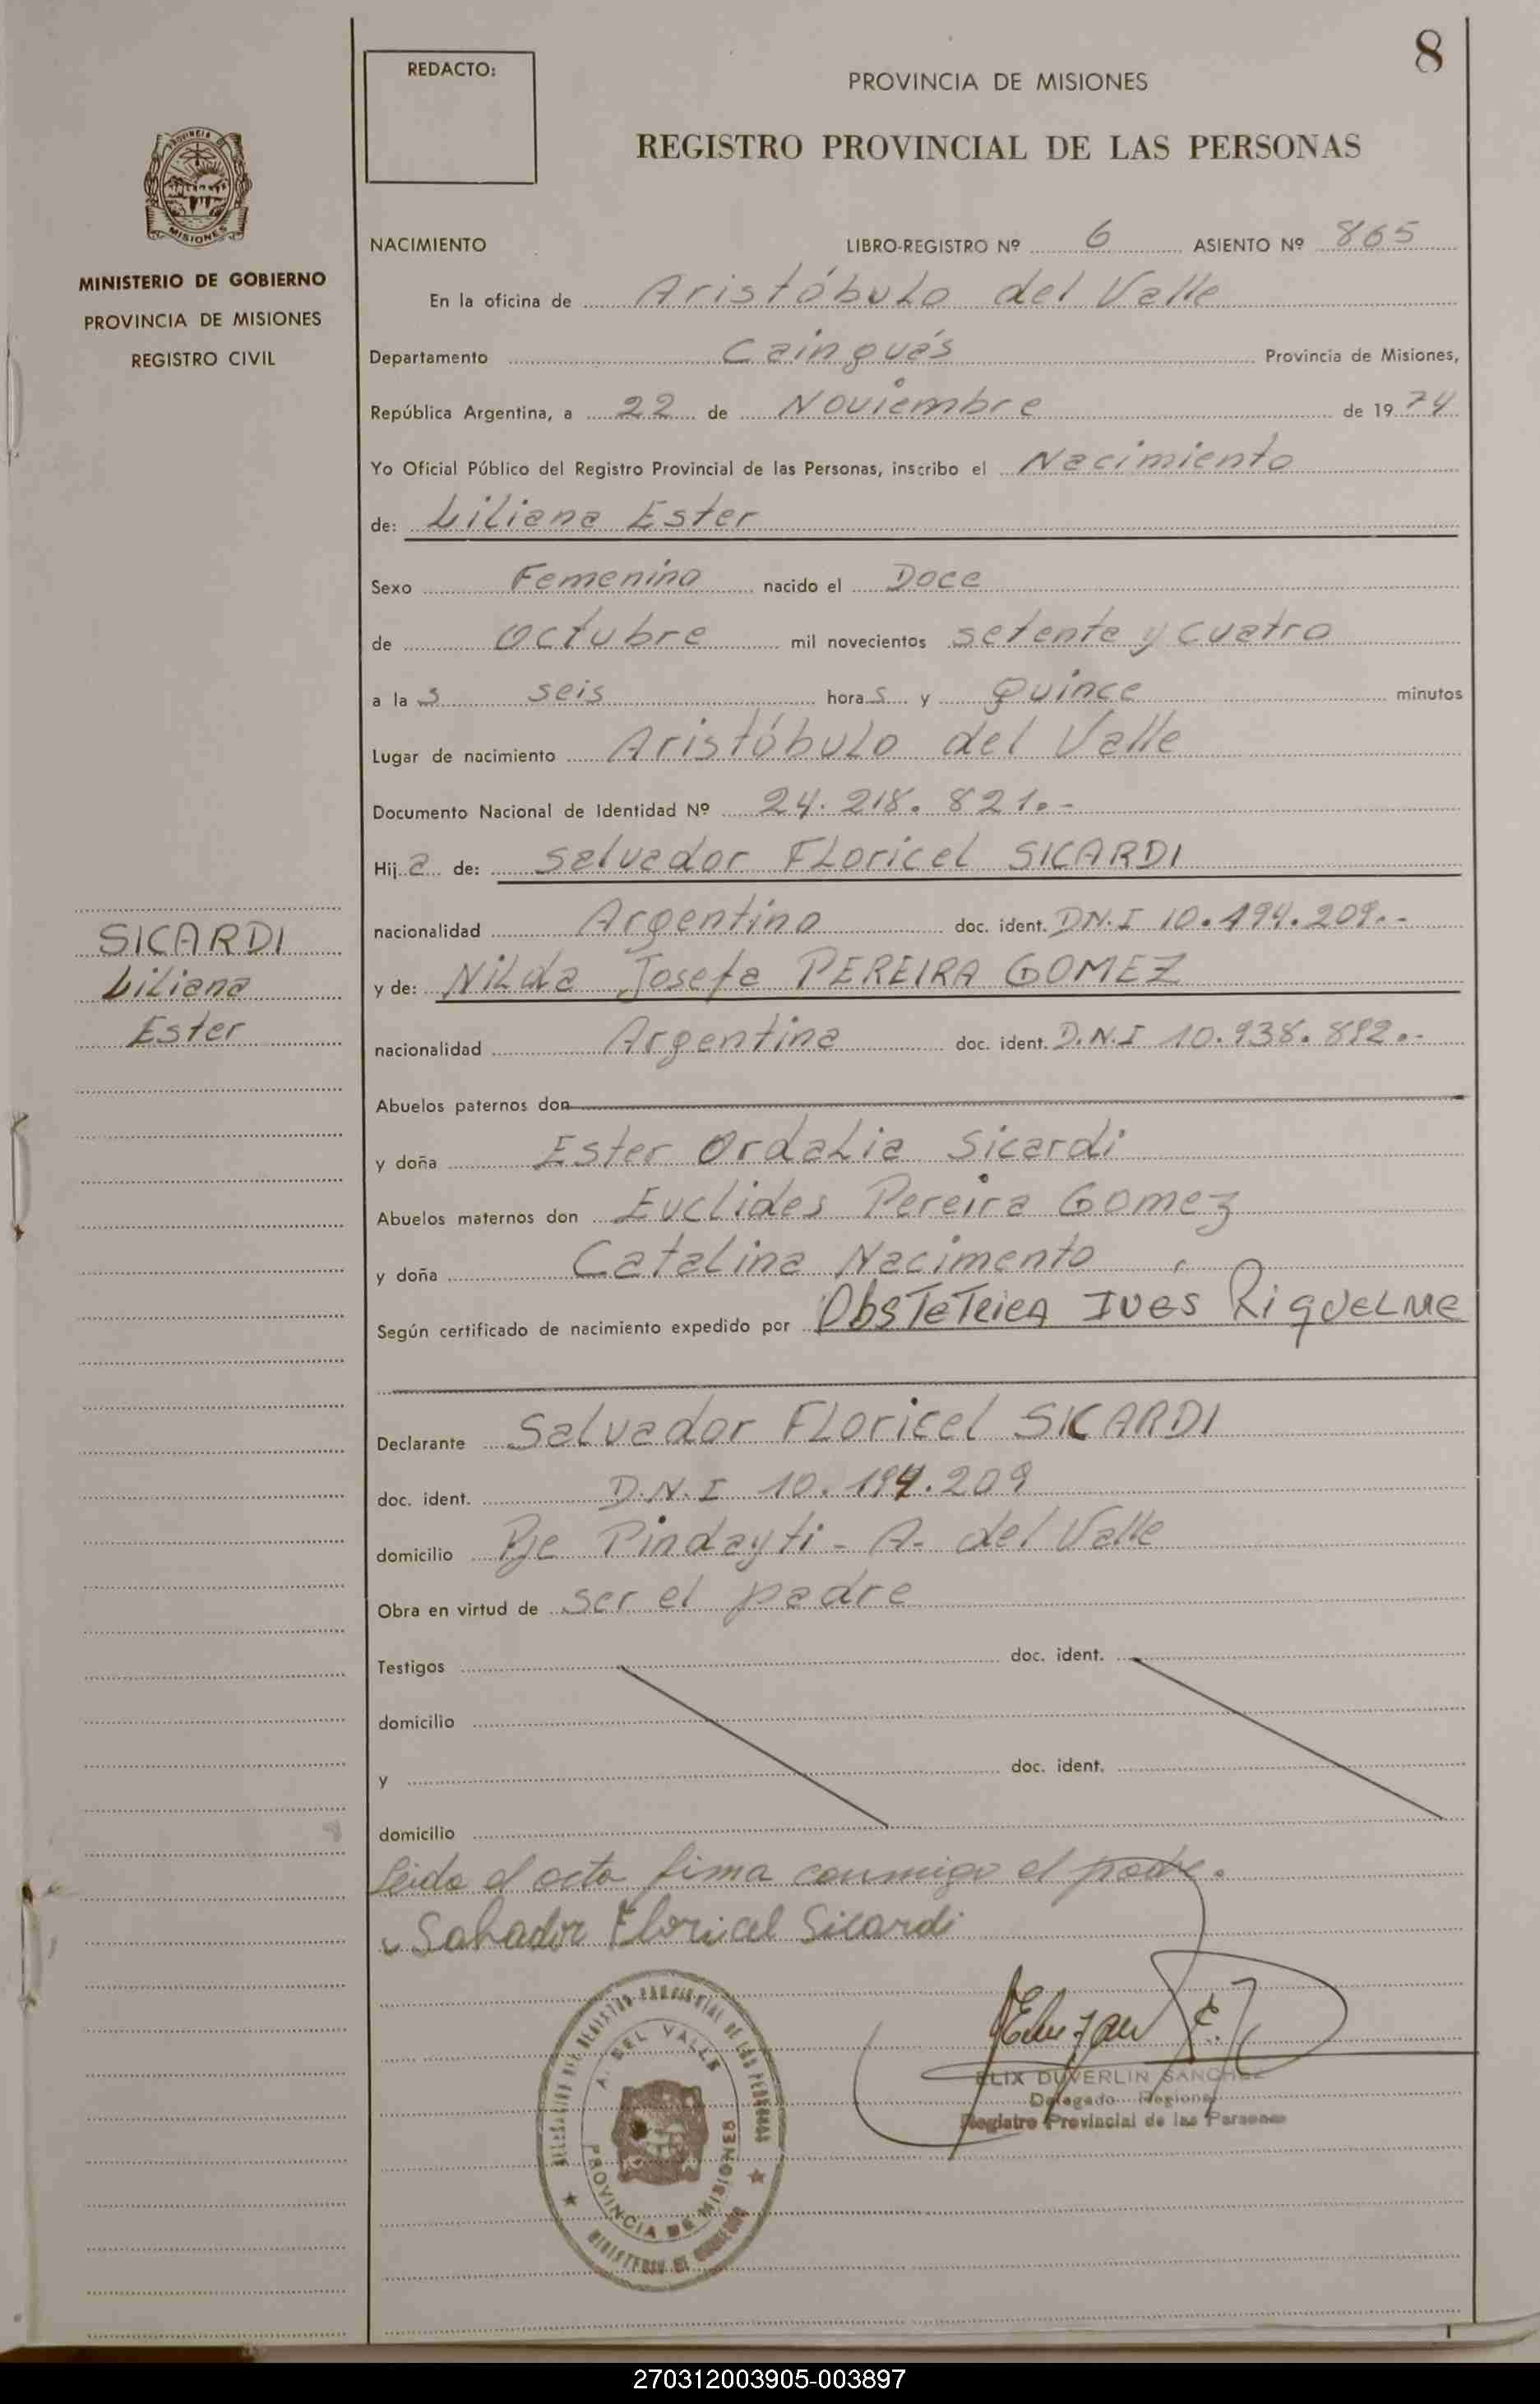 8
REDACTO:
PROVINCIA DE MISIONES
REGISTRO PROVINCIAL DE LAS PERSONAS
PROVINCIA
MISIONES
MINISTERIO DE GOBIERNO
PROVINCIA DE MISIONES
REGISTRO CIVIL
NACIMIENTO LIBRO-REGISTRO Nº 6 ASIENTO Nº 865
En la oficina de Aristóbulo del Valle
Departamento Cainguás Provincia de Misiones,
República Argentina, a 22 de Noviembre de 1974
Yo Oficial Público del Registro Provincial de las Personas, inscribo el Nacimiento
de: Liliana Ester
Sexo Femenino nacido el Doce
de Octubre mil novecientos setenta y cuatro
a las seis horas y Quince minutos
Lugar de nacimiento Aristóbulo del Valle
Documento Nacional de Identidad Nº 24.218.821.-
Hija de: Salvador Floricel SICARDI
nacionalidad Argentino doc. ident. D.N.I 10.194.209.-
SICARDI
Liliana
Ester
y de: Nilda Josefa PEREIRA GOMEZ
nacionalidad Argentina doc. ident. D.N.I 10.938.892.-
Abuelos paternos don
y doña Ester Ordalia Sicardi
Abuelos maternos don Euclides Pereira Gomez
y doña Catalina Nacimento
Según certificado de nacimiento expedido por ObsTeTRicA INes RiquELMe
Declarante Salvador Floricel SICARDI
doc. ident. D.N.I 10.194.209
domicilio Pje Pindayti - A. del Valle
Obra en virtud de ser el padre
Testigos doc. ident.
domicilio
y doc. ident.
domicilio
Leida el acta firma conmigo el padre.
Salvador Floricel Sicardi
DELEGACION DEL REGISTRO PROVINCIAL DE LAS PERSONAS
A. DEL VALLE
PROVINCIA DE MISIONES
MINISTERIO DE GOBIERNO
ELIX DUVERLIN SANCHEZ
Delegado Regional
Registro Provincial de las Personas
270312003905-003897